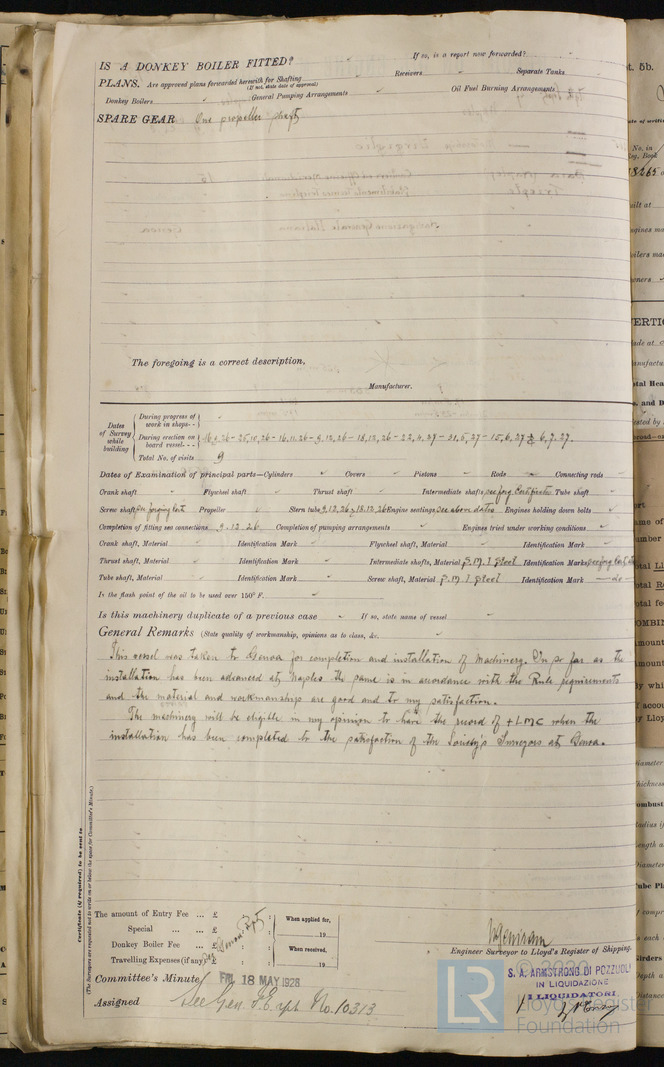 If so, is a report now forwarded?
IS A DONKEY BOILER FITTED?
PLANS. Are approved plans forwarded herewith for Shafting Receivers Separate Tanks
(If not, state date of approval)
Donkey Boilers General Pumping Arrangements Oil Fuel Burning Arrangements
SPARE GEAR One propeller shaft
The foregoing is a correct description,
Manufacturer.
Dates of Survey while building
During progress of work in shops - -
During erection on board vessel - - 25,10,26 - 16,11,26 - 9,12,26 - 18,12,26 - 22,4,27 - 31,5,27 - 15,6,27 & 6,7,27.
Total No. of visits 9
Dates of Examination of principal parts—Cylinders Covers Pistons Rods Connecting rods
Crank shaft Flywheel shaft Thrust shaft Intermediate shafts see forg. Certificates Tube shaft
Screw shaft see forging cert Propeller Stern tube 9,12,26 & 18,12,26 Engine seatings see above dates Engines holding down bolts
Completion of fitting sea connections 9.12.26 Completion of pumping arrangements Engines tried under working conditions
Crank shaft, Material Identification Mark Flywheel shaft, Material Identification Mark
Thrust shaft, Material Identification Mark Intermediate shafts, Material S.M.I Steel Identification Marks see forg Cert
Tube shaft, Material Identification Mark Screw shaft, Material S.M.I Steel Identification Mark — do —
Is the flash point of the oil to be used over 150° F.
Is this machinery duplicate of a previous case If so, state name of vessel
General Remarks (State quality of workmanship, opinions as to class, &c.
This vessel was taken to Genoa for completion and installation of Machinery. In so far as the
installation has been advanced at Naples the same is in accordance with the Rule requirements
and the material and workmanship are good and to my satisfaction.
The machinery will be eligible in my opinion to have the record of + LMC when the
installation has been completed to the satisfaction of the Society's Surveyors at Genoa.
Certificate (if required) to be sent to
(The Surveyors are requested not to write on or below the space for Committee's Minute.)
The amount of Entry Fee ... £ : : When applied for,
Special ... ... £ : : 19
Donkey Boiler Fee ... £ : : When received,
Travelling Expenses (if any) £ : : 19
See Genoa Rpt
Engineer Surveyor to Lloyd's Register of Shipping.
Committee's Minute FRI. 18 MAY 1928
Assigned See Gen F.E. rpt No. 10313
S. A. ARMSTRONG DI POZZUOLI
IN LIQUIDAZIONE
I LIQUIDATORI
LR
© 2020
Lloyd's Register
Foundation